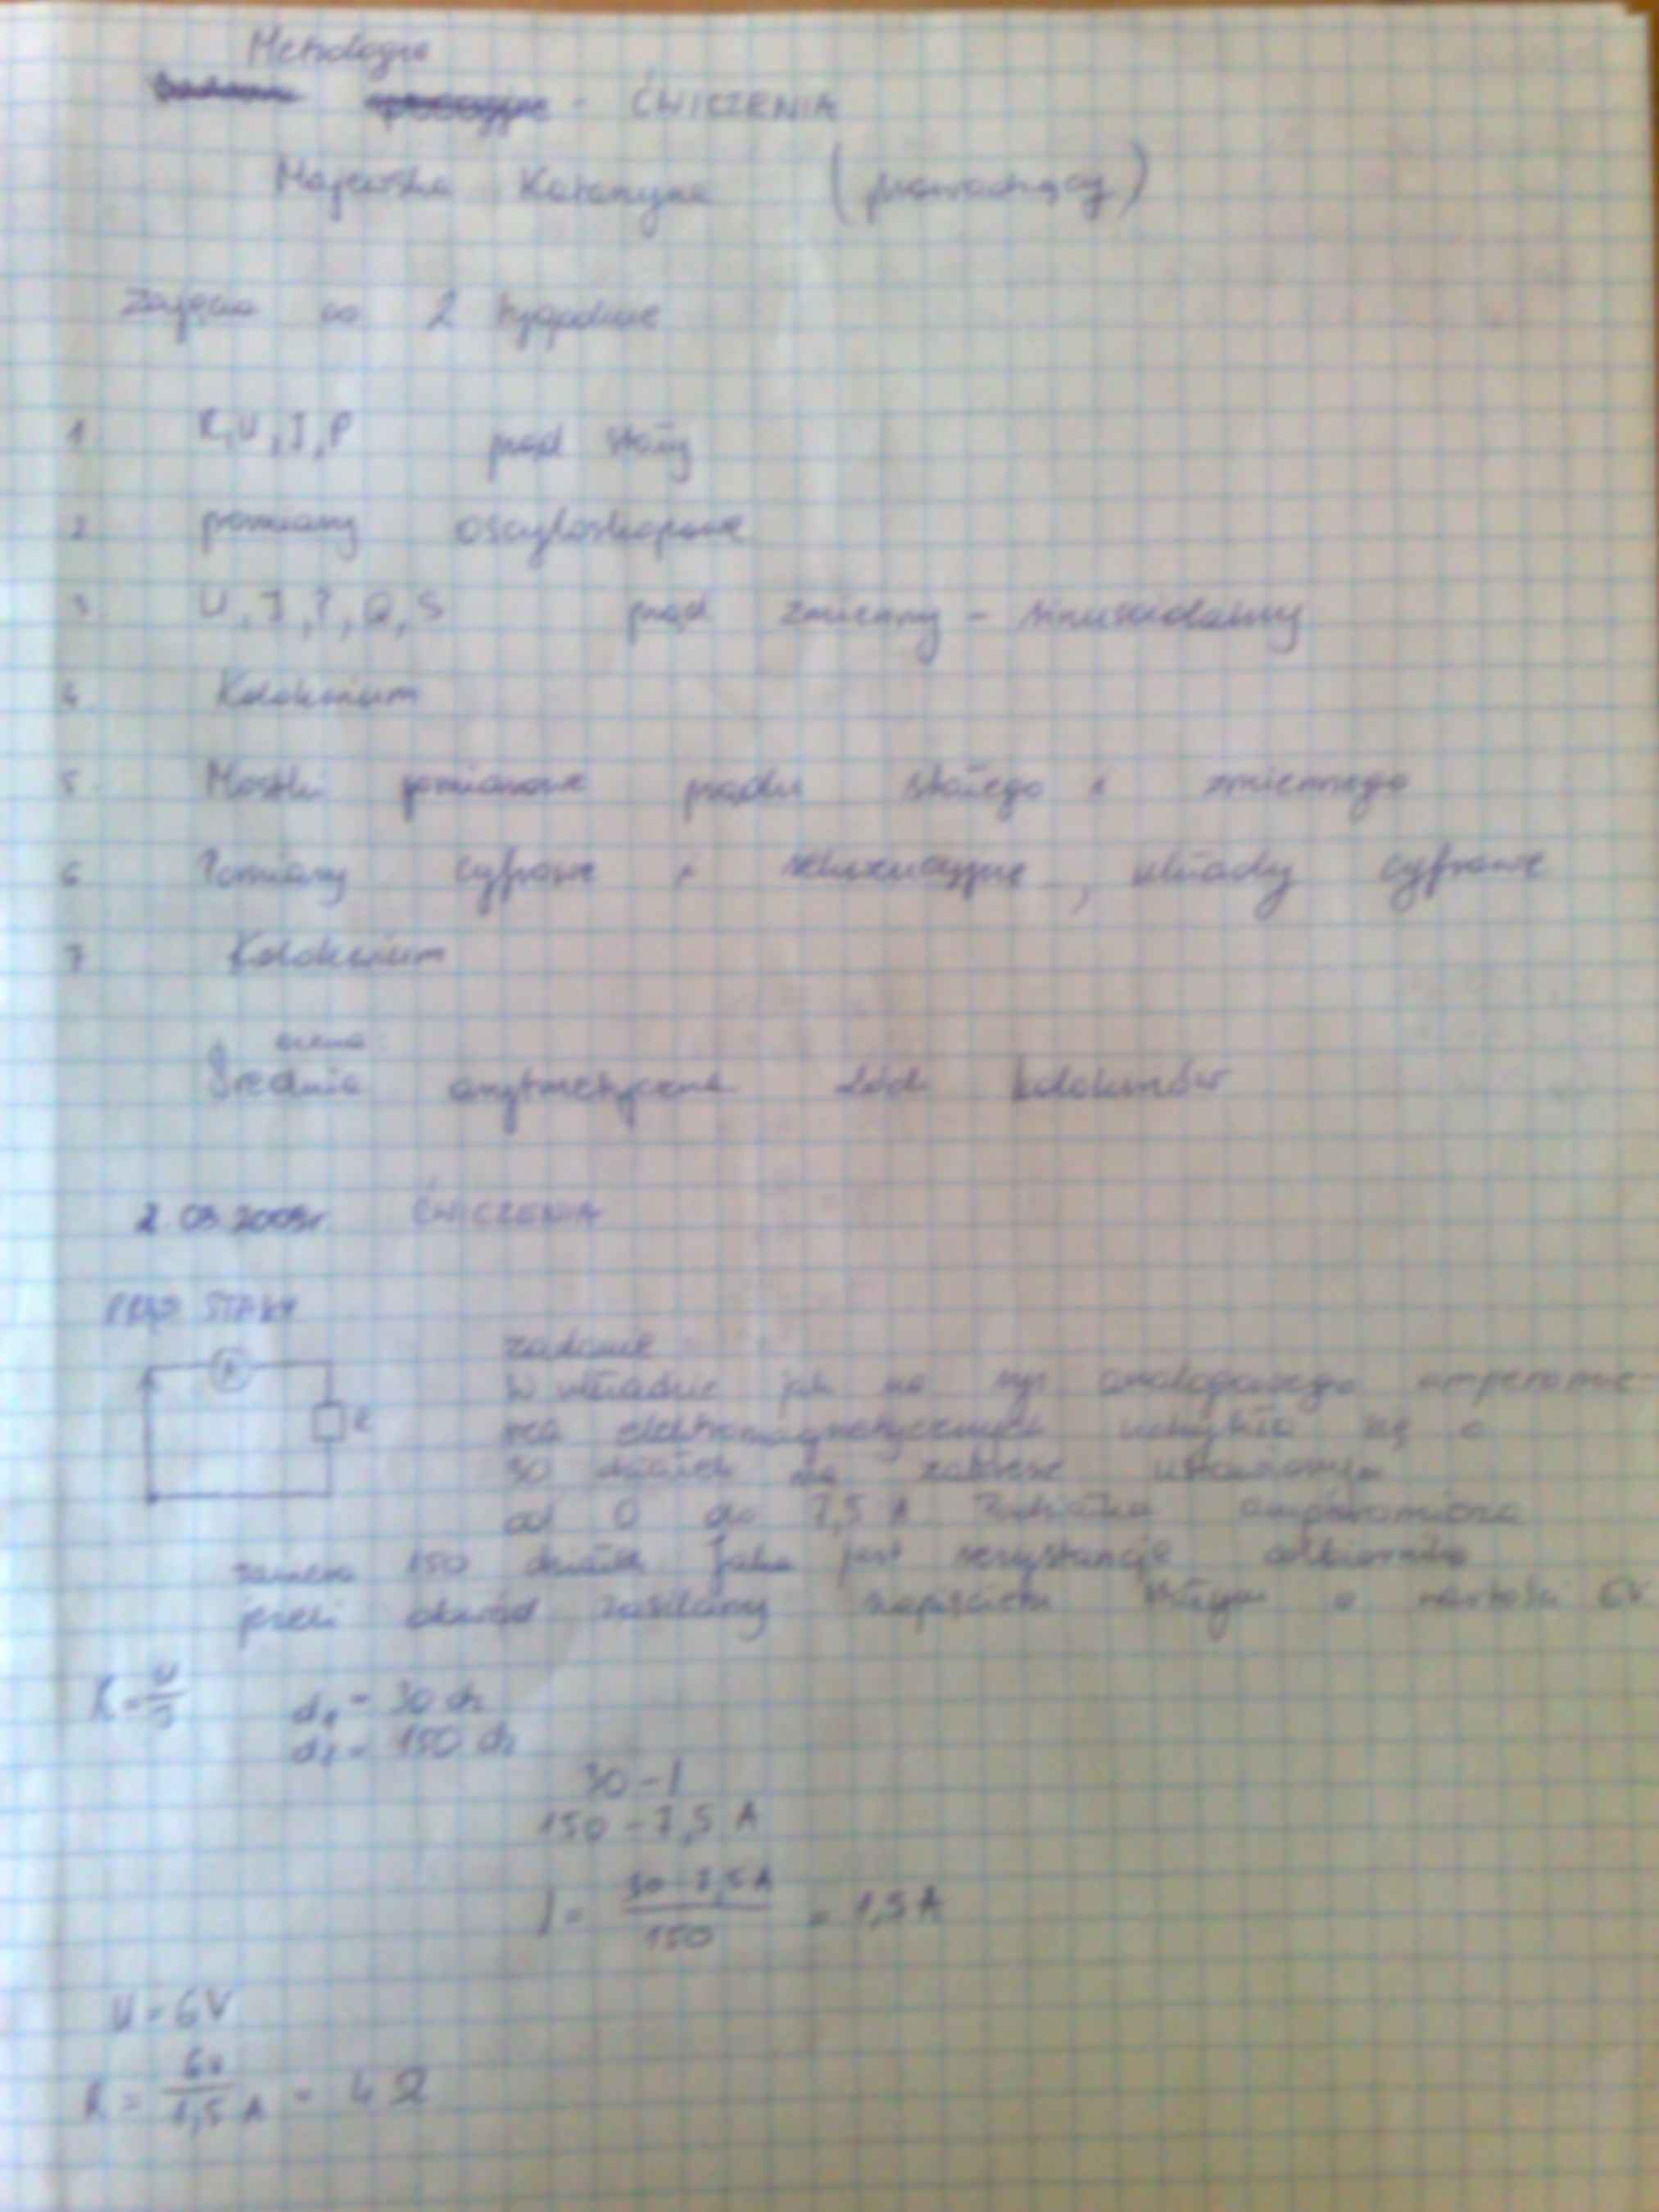 Metrologia
- ĆWICZENIA
Majewska Katarzyna (prowadzący)
Zajęcia co 2 tygodnie
1 R, U, I, P prąd stały
2 pomiary oscyloskopowe
3 U, I, P, Q, S prąd zmienny - sinusoidalny
4 Kolokwium
5 Mostki pomiarowe prądu stałego i zmiennego
6 Pomiary cyfrowe i , układy cyfrowe
7 Kolokwium
ocena
Średnia arytmetyczna 2óch kolokwiów
2.03.2009r ĆWICZENIA
PRĄD STAŁY
A
R
zadanie
W układzie jak na rys analogowego amperomie-
rza uchyliło się o
30 działek na zakresie ustawionym
od 0 do 7,5 A Podziałka amperomierza
zawiera 150 działek Jaka jest rezystancja odbiornika
jeżeli obwód zasilamy napięciem stałym o wartości 6V
R = U/I d1 = 30 dz
d2 = 150 dz
30 - I
150 - 7,5 A
I = 30 · 7,5 A / 150 = 1,5 A
U = 6V
R = 6V / 1,5 A = 4 Ω